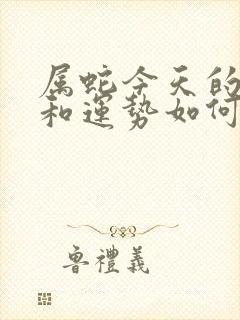 属蛇今天的
和運勢如何
魯禮義